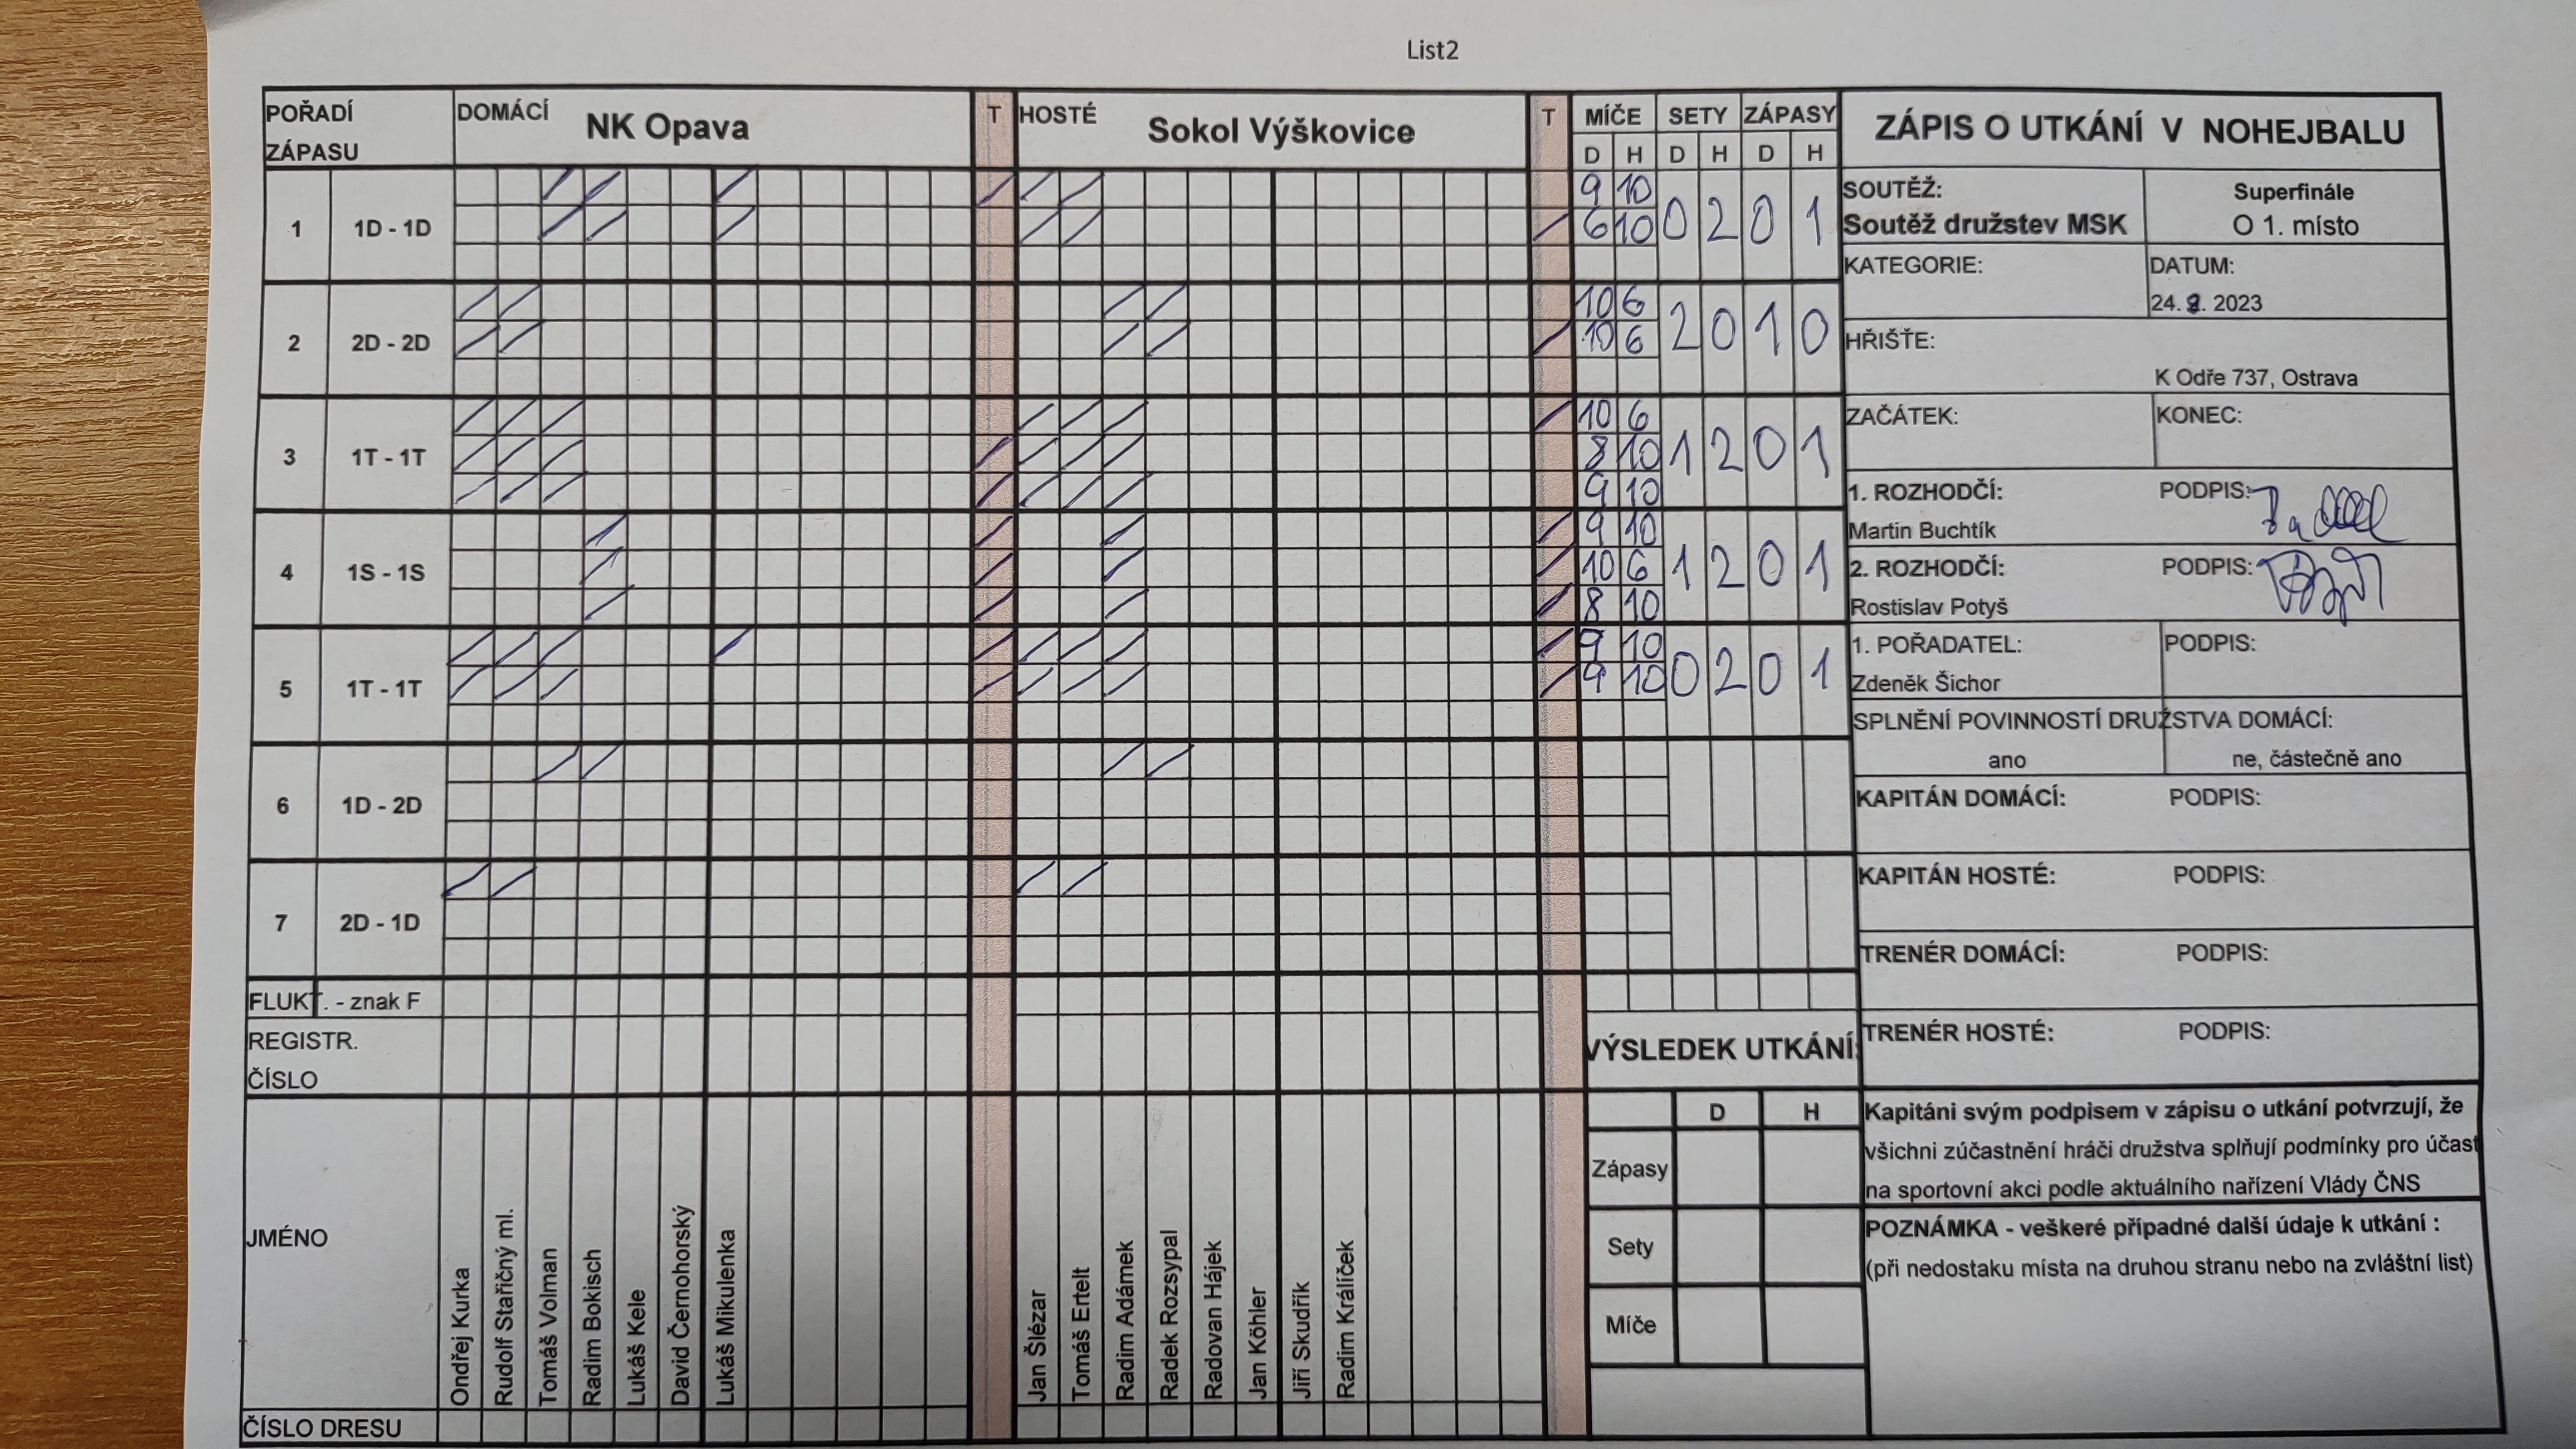 List2
POŘADÍ ZÁPASU DOMÁCÍ NK Opava T HOSTÉ Sokol Výškovice T MÍČE SETY ZÁPASY
D H D H D H
1 1D - 1D 9 10 0 2 0 1
6 10
2 2D - 2D 10 6 2 0 1 0
10 6
3 1T - 1T 10 6 1 2 0 1
8 10
9 10
4 1S - 1S 9 10 1 2 0 1
10 6
8 10
5 1T - 1T 9 10 0 2 0 1
9 10
6 1D - 2D
7 2D - 1D
FLUKT. - znak F
REGISTR.
ČÍSLO
JMÉNO
Ondřej Kurka
Rudolf Stařičný ml.
Tomáš Volman
Radim Bokisch
Lukáš Kele
David Černohorský
Lukáš Mikulenka
Jan Šlézar
Tomáš Ertelt
Radim Adámek
Radek Rozsypal
Radovan Hájek
Jan Köhler
Jiří Skudřík
Radim Králíček
ČÍSLO DRESU
VÝSLEDEK UTKÁNÍ:
D H
Zápasy
Sety
Míče
ZÁPIS O UTKÁNÍ V NOHEJBALU
SOUTĚŽ: Superfinále
Soutěž družstev MSK O 1. místo
KATEGORIE: DATUM:
24. 9. 2023
HŘIŠTE:
K Odře 737, Ostrava
ZAČÁTEK: KONEC:
1. ROZHODČÍ: PODPIS:
Martin Buchtík
2. ROZHODČÍ: PODPIS:
Rostislav Potyš
1. POŘADATEL: PODPIS:
Zdeněk Šichor
SPLNĚNÍ POVINNOSTÍ DRUŽSTVA DOMÁCÍ:
ano ne, částečně ano
KAPITÁN DOMÁCÍ: PODPIS:
KAPITÁN HOSTÉ: PODPIS:
TRENÉR DOMÁCÍ: PODPIS:
TRENÉR HOSTÉ: PODPIS:
Kapitáni svým podpisem v zápisu o utkání potvrzují, že
všichni zúčastnění hráči družstva splňují podmínky pro účast
na sportovní akci podle aktuálního nařízení Vlády ČNS
POZNÁMKA - veškeré případné další údaje k utkání :
(při nedostaku místa na druhou stranu nebo na zvláštní list)